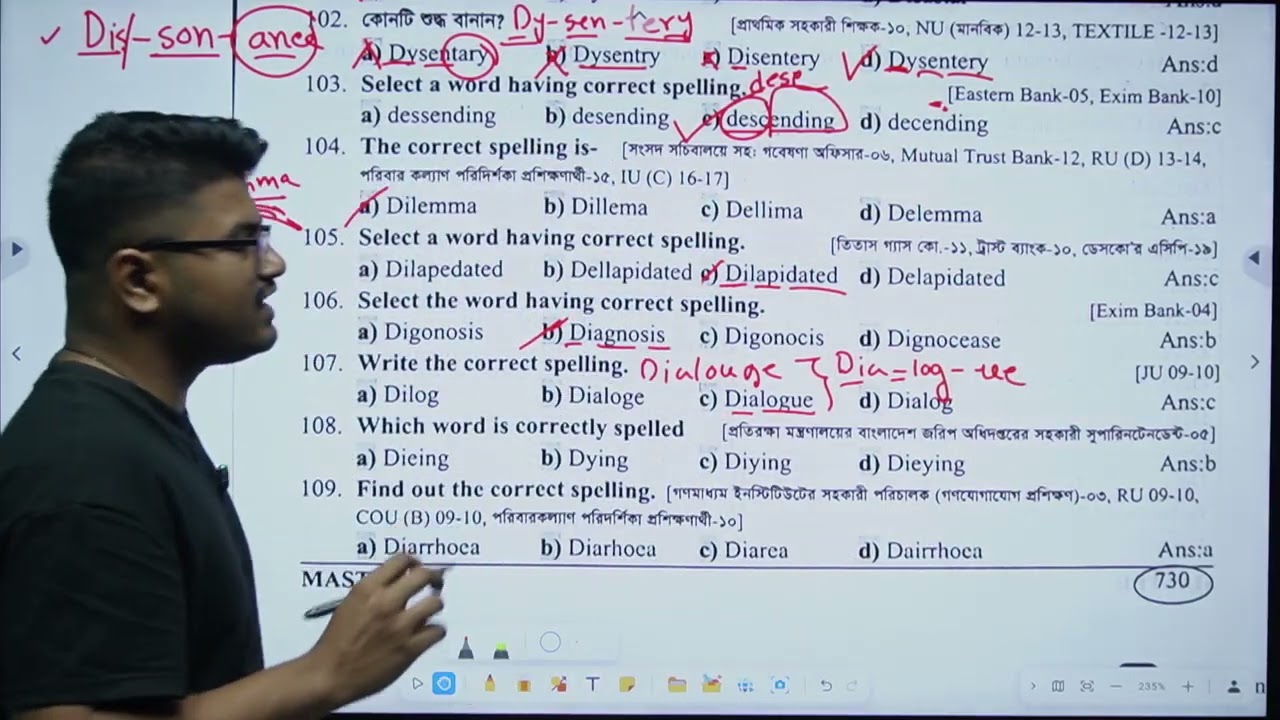 Dis-son-ance
102. কোনটি শুদ্ধ বানান? Dy-sen-tery [প্রাথমিক সহকারী শিক্ষক-১০, NU (মানবিক) 12-13, TEXTILE -12-13]
a) Dysentary b) Dysentry c) Disentery d) Dysentery Ans:d
103. Select a word having correct spelling. desc
[Eastern Bank-05, Exim Bank-10]
a) dessending b) desending c) descending d) decending Ans:c
104. The correct spelling is- [সংসদ সচিবালয়ে সহঃ গবেষণা অফিসার-০৬, Mutual Trust Bank-12, RU (D) 13-14,
পরিবার কল্যাণ পরিদর্শিকা প্রশিক্ষণার্থী-১৫, IU (C) 16-17]
mma
a) Dilemma b) Dillema c) Dellima d) Delemma Ans:a
105. Select a word having correct spelling. [তিতাস গ্যাস কো.-১১, ট্রাস্ট ব্যাংক-১০, ডেসকো'র এসিপি-১৯]
a) Dilapedated b) Dellapidated c) Dilapidated d) Delapidated Ans:c
106. Select the word having correct spelling. [Exim Bank-04]
a) Digonosis b) Diagnosis c) Digonocis d) Dignocease Ans:b
107. Write the correct spelling. Dialouge Dia=log-ue [JU 09-10]
a) Dilog b) Dialoge c) Dialogue d) Dialog Ans:c
108. Which word is correctly spelled [প্রতিরক্ষা মন্ত্রণালয়ের বাংলাদেশ জরিপ অধিদপ্তরের সহকারী সুপারিনটেনডেন্ট-০৫]
a) Dieing b) Dying c) Diying d) Dieying Ans:b
109. Find out the correct spelling. [গণমাধ্যম ইনস্টিটিউটের সহকারী পরিচালক (গণযোগাযোগ প্রশিক্ষণ)-০৩, RU 09-10,
COU (B) 09-10, পরিবারকল্যাণ পরিদর্শিকা প্রশিক্ষণার্থী-১০]
a) Diarrhoea b) Diarhoea c) Diarea d) Dairrhoea Ans:a
MAST 730
235%